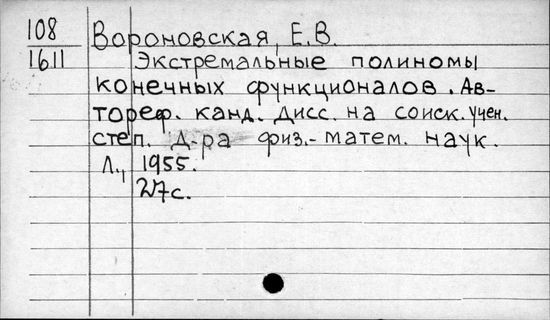 108 Вороновская, Е.В.
1611 Экстремальные полиномы
конечных функционалов. Ав-
тореф. канд. дисс. на соиск. учен.
степ. д-ра физ.-матем. наук.
Л., 1955.
27с.